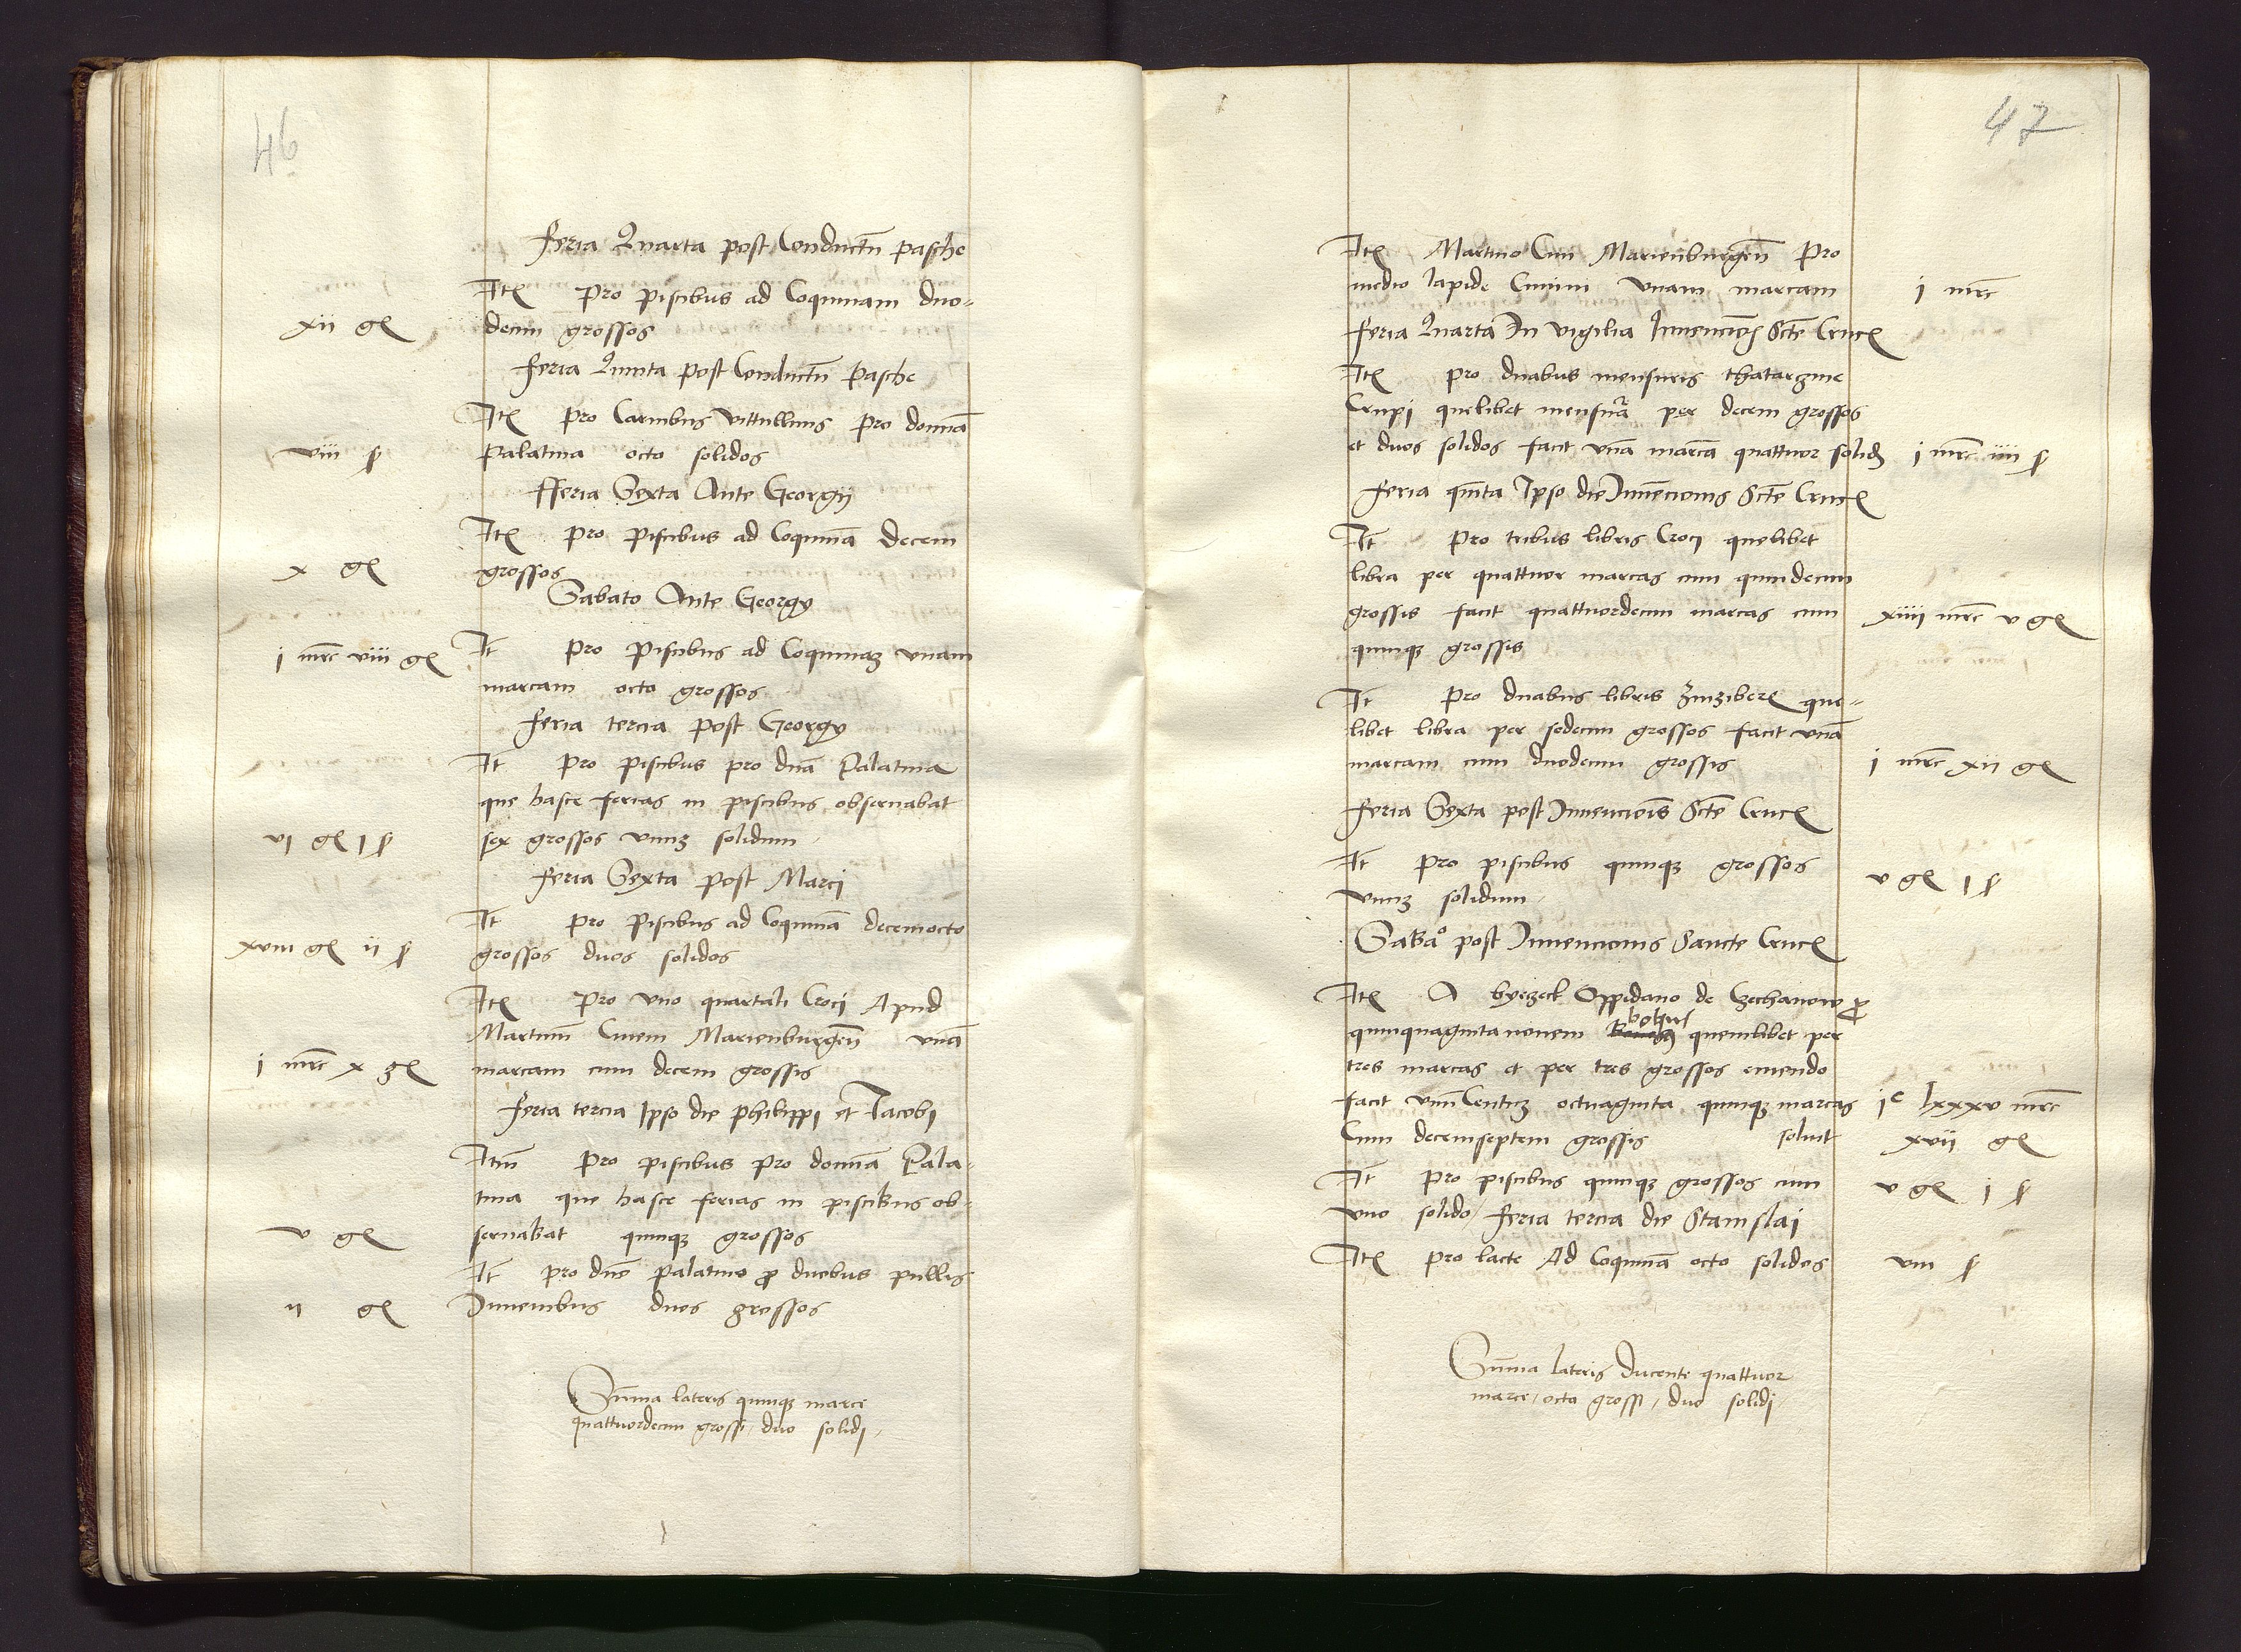 46
Feria Quarta post Conductū pasche
Itē pro piscibus ad Coquinam duo-
xii gē decim grossos
Feria Quinta post Conductū Pasche
Itē pro Carnibus vittullinis pro domīa
viii ſ palatina octo solidos
fferia Sexta Ante Georgij
Itē pro piscibus ad Coquinā decem
x gē grossos
Sabato Ante Georgy
i mrc viii gē It pro piscibus ad Coquinaz vnam
marcam octo grossos
Feria tercia post Georgy
It pro piscibus pro dnā Palatina
que hasce ferias in piscibus obseruabat
vi gē i ſ sex grossos vnuz solidum
Feria Sexta post Marci
It pro piscibus ad Coquinā decemocto
xviii gē ii ſ grossos duos solidos
Itē pro vno quartali Croci Apud
Martinū Ciuem Marienburgeñ vnā
i mrc x gē marcam cum decem grossis
Feria tercia Ipso die philippi et Jacobi
Itm pro piscibus pro domīa Pala-
tina que hasce ferias in piscibus ob-
v gē seruabat quinqz grossos
It pro dne palatine ꝓ duobus pullis
ii gē Iuuenibus duos grossos
Sūma lateris quinqz marce
quattuordecim grossi, duo solidi,
47
Itē Martino Ciui Marienburgeñ pro
medio lapide Cimini vnam marcam i mrc
Feria Quarta In vigilia Inuencioīs Scte Crucē
Itē pro duabus mensuris thatarzine
Crupi quelibet mensurā per decem grossos
et duos solidos facit vnā marcā quattuor solid i mrc iiii ſ
Feria quīta Ipso die Inuencionis Scte Crucē
It pro tribus libris Croci quelibet
libra per quattuor marcas cum quindecim
grossis facit quattuordecim marcas cum xiiii mrc v gē
quinqz grossis
It pro duabus libris Zinziberē que-
libet libra per sedecim grossos facit vnā
marcam cum duodecim grossis i mrc xii gē
Feria Sexta post Inuencionis Scte Crucē
It pro piscibus quinqz grossos v gē i ſ
vnuz solidum
Sabāo post Inuencionis Sancte Crucē
Itē A byezek Oppidano de Czechanow ꝓ
bobus
quinquaginta nouem quemlibet per
tres marcas et per tres grossos emendo
facit vnū Centuz octuaginta quinqz marcas iᶜ lxxxv mrc
Cum decemseptem grossis soluit xvii gē
It pro piscibus quinqz grossos cum v gē i ſ
vno solido / Feria tercia die Stanislai
Itē pro lacte Ad Coquinā octo solidos viii ſ
Sūma lateris Ducente quattuor
marce, octo grossi, duo solidi